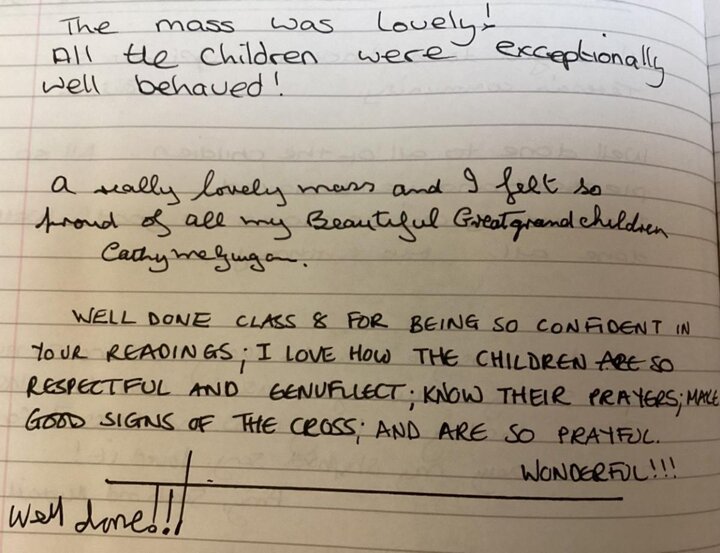 The mass was lovely!
All the children were exceptionally
well behaved!
a really lovely mass and I felt so
proud of all my Beautiful Greatgrandchildren
Cathy McGuigan.
WELL DONE CLASS 8 FOR BEING SO CONFIDENT IN
YOUR READINGS; I LOVE HOW THE CHILDREN ARE SO
RESPECTFUL AND GENUFLECT; KNOW THEIR PRAYERS; MAKE
GOOD SIGNS OF THE CROSS; AND ARE SO PRAYFUL.
WONDERFUL!!!
Well done!!!